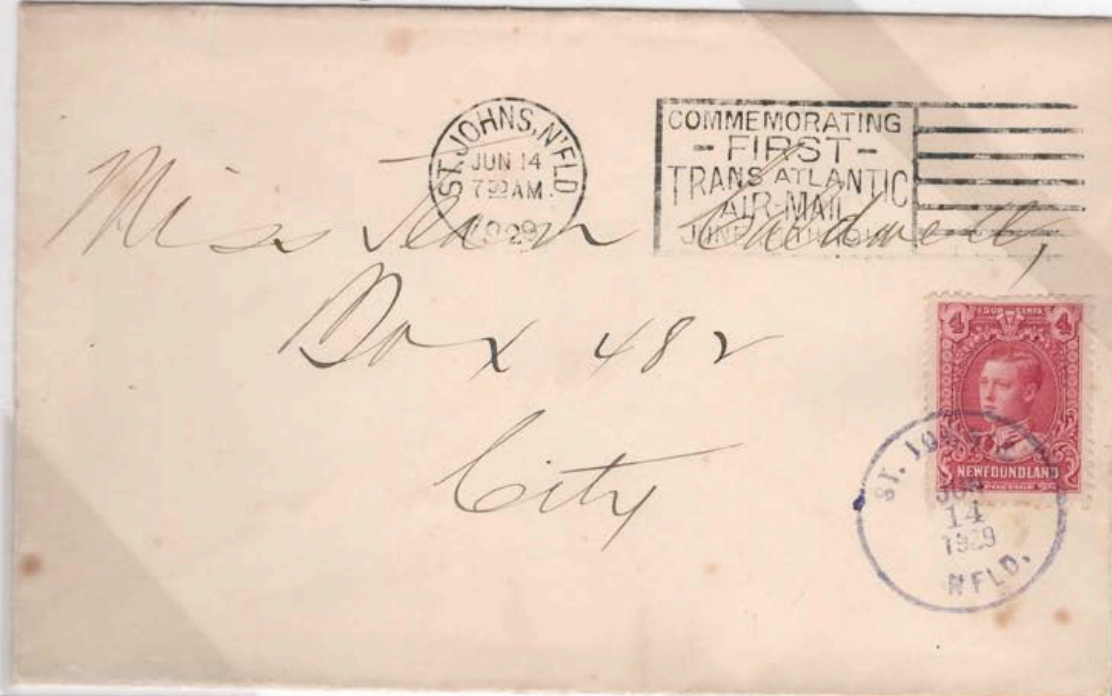 ST. JOHNS, N'FLD
JUN 14
7 AM
1929
COMMEMORATING
- FIRST -
TRANS ATLANTIC
AIR-MAIL
JUNE
Miss Jean
Box 482
City
4 FOUR CENTS 4
NEWFOUNDLAND
POSTAGE
ST. JOHN'S
JUN
14
1929
N'FLD.